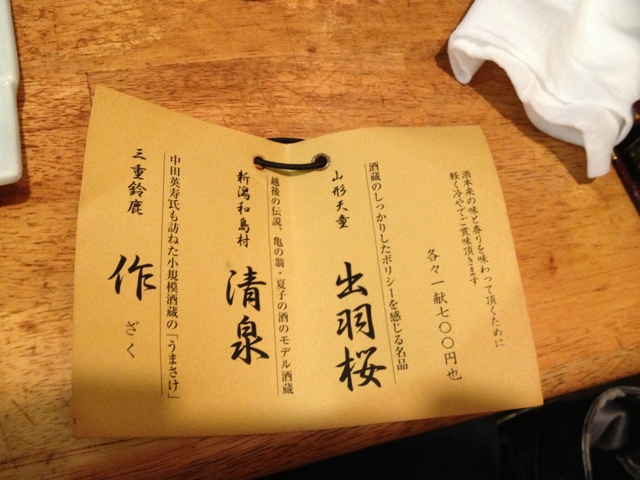 酒本来の味と香りを味わって頂くために
軽く冷やでご賞味頂きます
各々一献七〇〇円也
酒蔵のしっかりしたポリシーを感じる名品
山形天童
出羽桜
越後の伝説、亀の翁・夏子の酒のモデル酒蔵
新潟和島村
清泉
中田英寿氏も訪ねた小規模酒蔵の「うまさけ」
三重鈴鹿
作
ざく